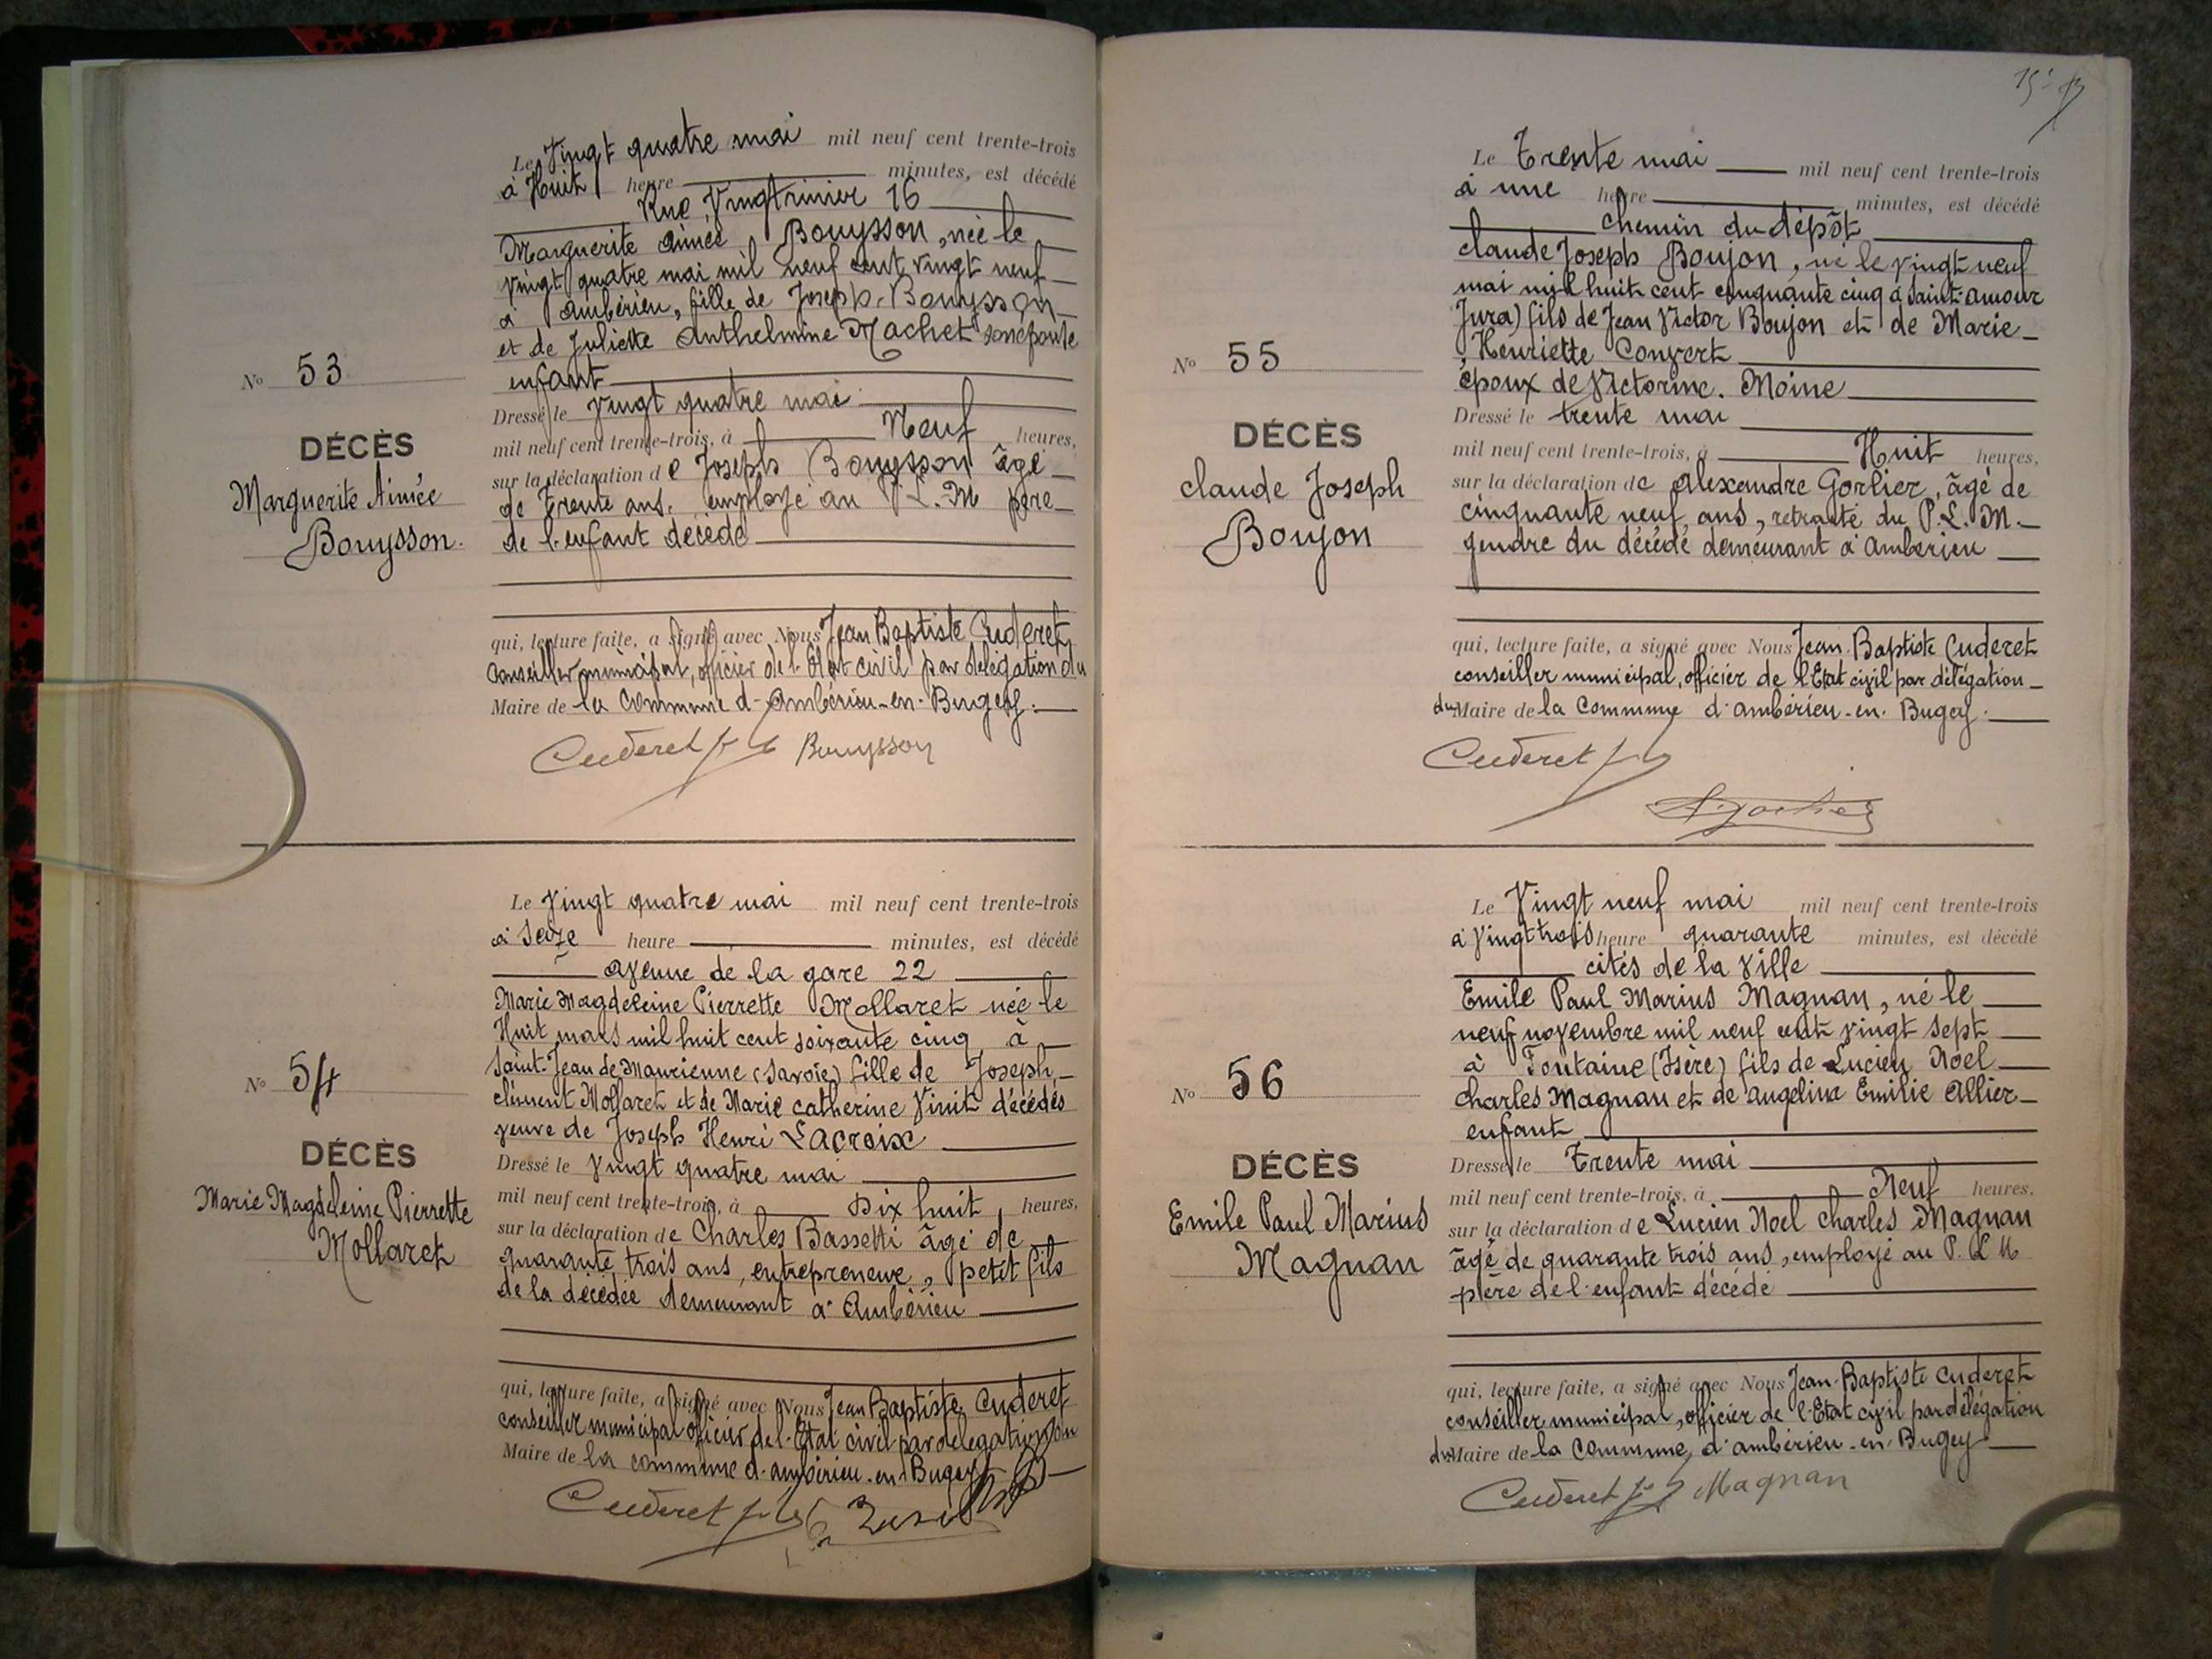 Le Vingt quatre mai mil neuf cent trente-trois
à Huit heure minutes, est décédé
Rue Vingtrinier 16
Marguerite Aimée Bouysson, née le
vingt quatre mai mil neuf cent vingt neuf
à Ambérieu, fille de Joseph Bouysson
et de Juliette Anthelmine Machet son épouse
enfant
No 53
DÉCÈS
Marguerite Aimée
Bouysson.
Dressé le vingt quatre mai
mil neuf cent trente-trois, à Neuf heures,
sur la déclaration de Joseph Bouysson âgé
de trente ans, employé au P.L.M père
de l'enfant décédé
qui, lecture faite, a signé avec Nous Jean Baptiste Cuderet
conseiller municipal, officier de l'Etat civil par délégation du
Maire de la Commune d'Ambérieu-en-Bugey.
Cuderet Bouysson
Le Vingt quatre mai mil neuf cent trente-trois
à Seize heure minutes, est décédé
avenue de la gare 22
Marie Magdeleine Pierrette Mollaret née le
Huit mars mil huit cent soixante cinq, à
Saint-Jean de Maurienne (Savoie) fille de Joseph
clément Mollaret et de Marie catherine Vinit décédés
veuve de Joseph Henri Lacroix
No 54
DÉCÈS
Marie Magdeleine Pierrette
Mollaret
Dressé le vingt quatre mai
mil neuf cent trente-trois, à Dix huit heures,
sur la déclaration de Charles Bassetti âgé de
quarante trois ans, entrepreneur, petit fils
de la décédée demeurant à Ambérieu
qui, lecture faite, a signé avec Nous Jean Baptiste Cuderet
conseiller municipal officier de l'Etat civil par délégation du
Maire de la commune d'ambérieu-en-Bugey
Cuderet
Le Trente mai mil neuf cent trente-trois
à une heure minutes, est décédé
chemin du dépôt
claude Joseph Boujon, né le vingt neuf
mai mil huit cent cinquante cinq à Saint-amour
Jura) fils de Jean Victor Boujon et de Marie
Henriette Convert
époux de Victorine Moine
No 55
DÉCÈS
claude Joseph
Boujon
Dressé le trente mai
mil neuf cent trente-trois, à Huit heures,
sur la déclaration de Alexandre Gorlier, âgé de
cinquante neuf ans, retraité du P.L.M.
gendre du décédé demeurant à Amberieu
qui, lecture faite, a signé avec Nous Jean Baptiste Cuderet
conseiller municipal, officier de l'Etat civil par délégation
du Maire de la Commune d'ambérieu-en-Bugey.
Cuderet
Le Vingt neuf mai mil neuf cent trente-trois
à Vingt trois heure quarante minutes, est décédé
cités de la ville
Emile Paul Marius Magnan, né le
neuf novembre mil neuf cent vingt sept
à Fontaine (Isère) fils de Lucien Noel
charles Magnan et de Angelina Emilie Allier
enfant
No 56
DÉCÈS
Emile Paul Marius
Magnan
Dressé le Trente mai
mil neuf cent trente-trois, à Neuf heures.
sur la déclaration de Lucien Noel charles Magnan
âgé de quarante trois ans, employé au P. L M
père de l'enfant décédé
qui, lecture faite, a signé avec Nous Jean-Baptiste Cuderet
conseiller municipal, officier de l'Etat civil par délégation
du Maire de la Commune, d'ambérieu-en-Bugey
Cuderet Magnan